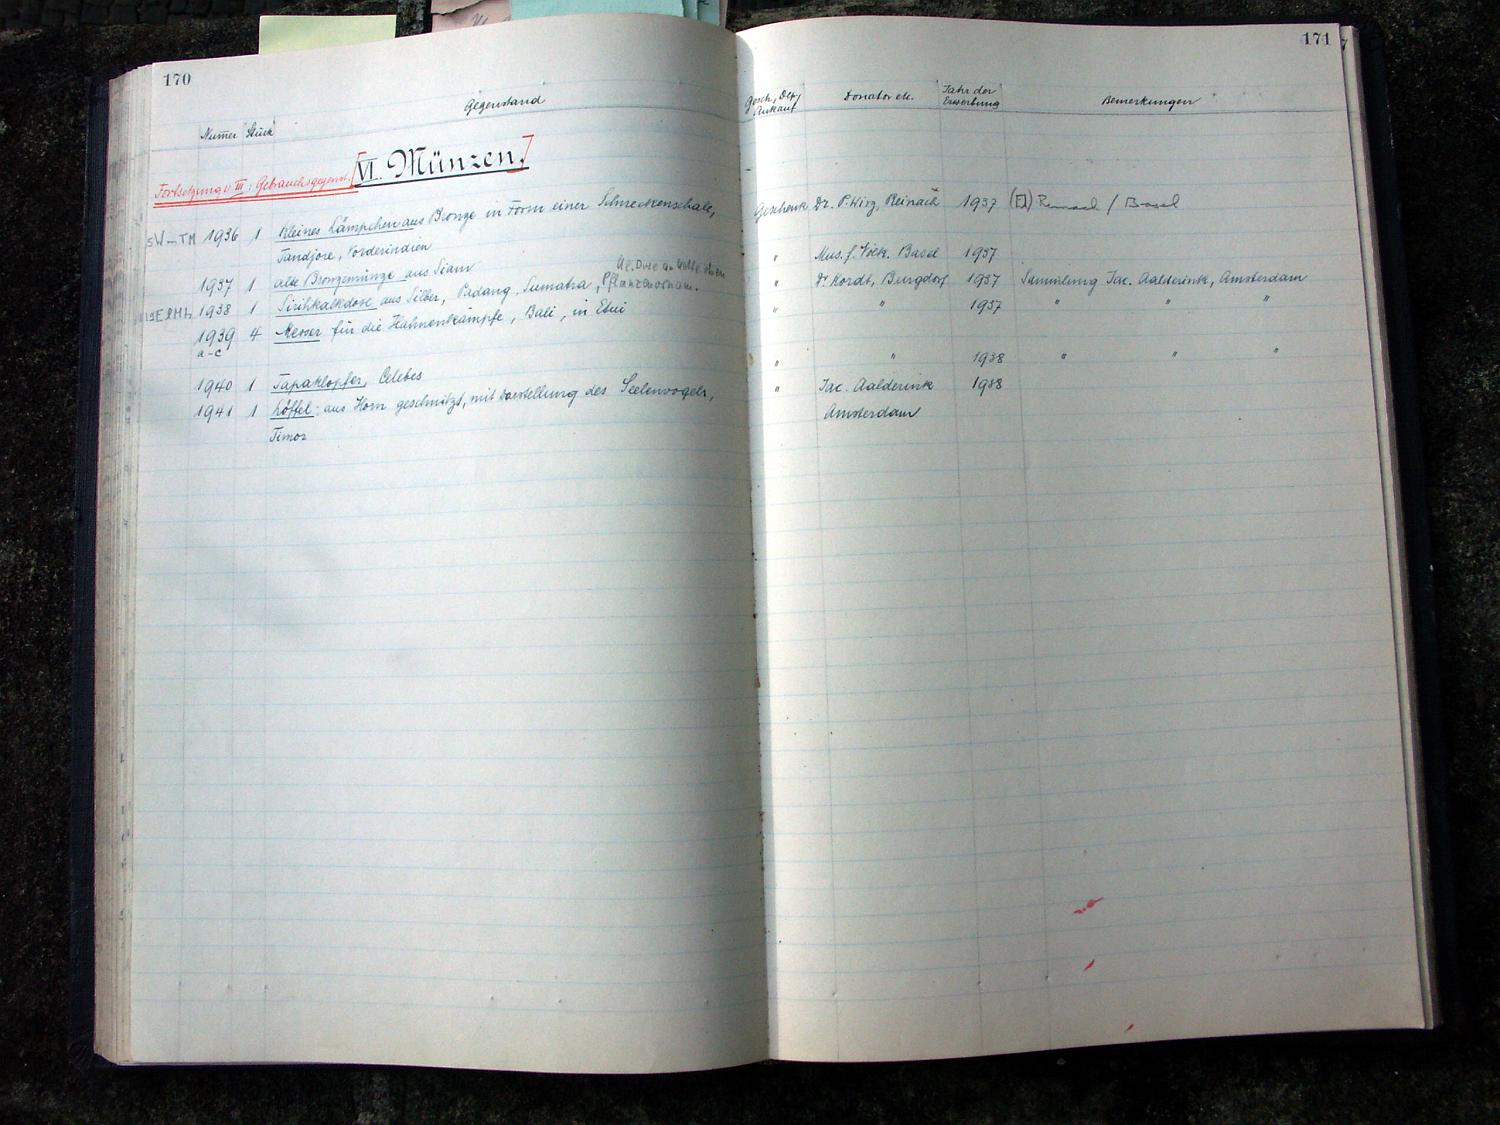 170
Gegenstand
Numer Stück
Fortsetzung v. III: Gebrauchsgegenst. [VI. Münzen.]
1936 1 Kleines Lämpchen aus Bronze in Form einer Schneckenschale,
Tandjore, Vorderindien
1937 1 alte Bronzemünze aus Siam
1938 1 Sirihkalkdose aus Silber, Padang Sumatra,
1939 4 Messer für die Hahnenkämpfe, Bali, in Etui
a-c
1940 1 Tapaklopfer, Celebes
1941 1 Löffel: aus Horn geschnitzt, mit Darstellung des Seelenvogels,
Timor
171
Gesch., Dep., Ankauf
Donator etc.
Jahr der Erwerbung
Bemerkungen
Geschenk Dr. P. Wirz, Reinach 1937 Reinach / Basel
" Mus. f. Völk. Basel 1937
" Dr. Kordt, Burgdorf 1937 Sammlung Jac. Aalderink, Amsterdam
" " 1937 " " "
" " 1938 " " "
" Jac. Aalderink 1938
Amsterdam